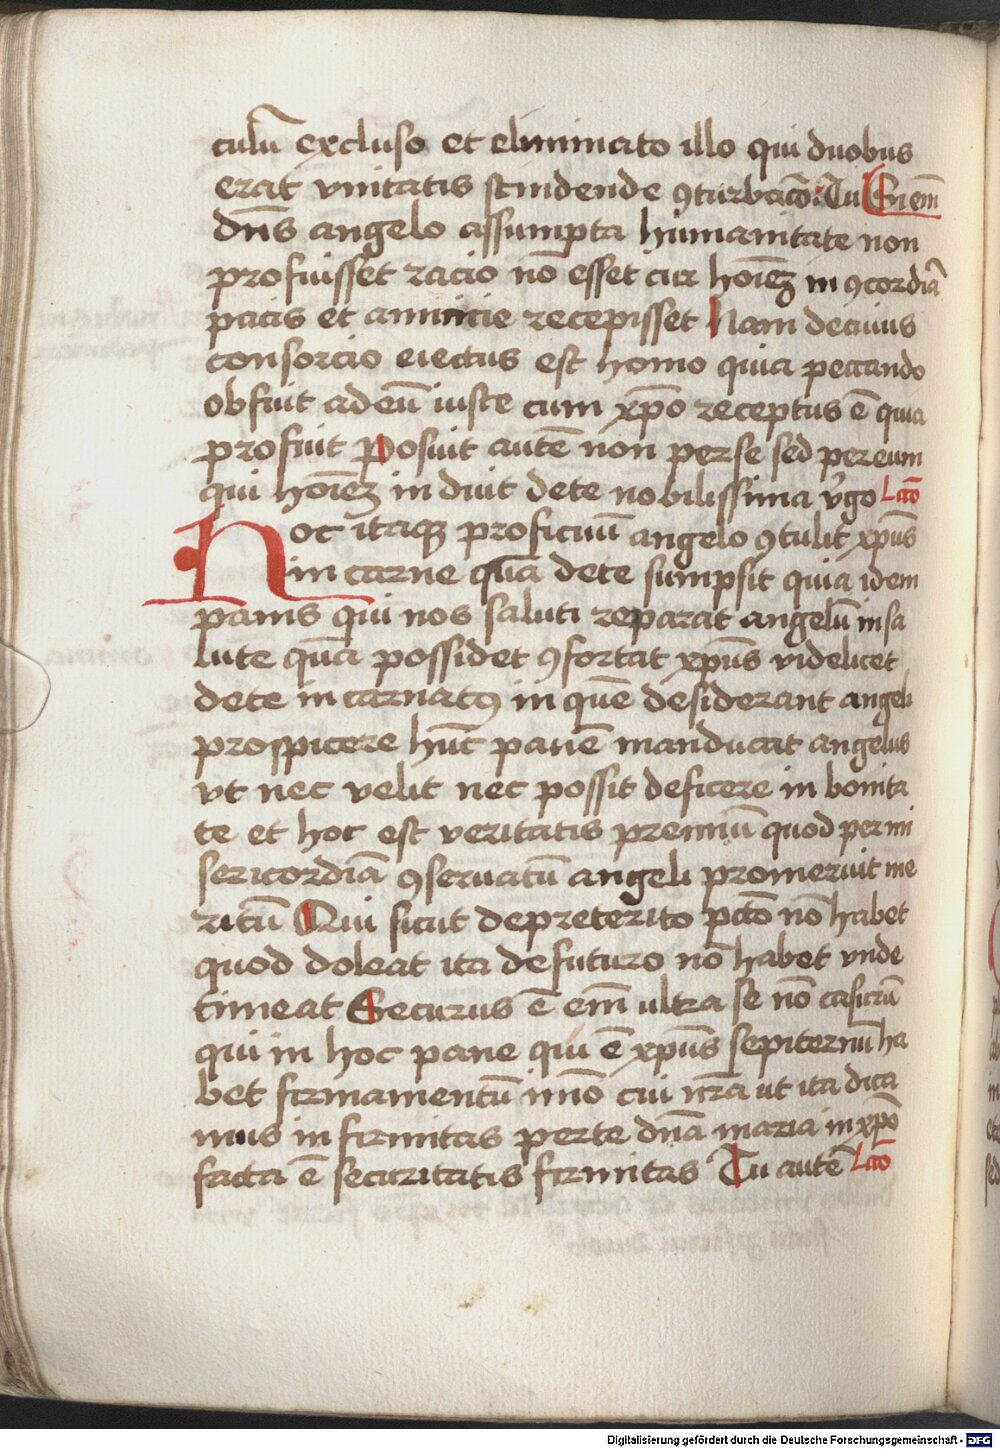 culū excluso et eliminato illo qui duobus
erat vnitatis scindende ꝯturbatō: Tu En em̄
dn̄s angelo assumpta humanitate non
profuisset racio nō esset cur hoīeꝫ in ꝯcordiā
pacis et amicicie recepisset Nam de cuius
consorcio eiectus est homo quia peccando
obfuit ad eū iuste cum xp̄o receptus ē quia
profuit Posuit autē non per se sed per eum
qui hoīeꝫ induit de te nobilissima v̄go Lcō
Hoc itaqꝫ proficuū angelo ꝯtulit xp̄us
in carne quā de te sumpsit quia idem
panis qui nos saluti reparat angelū in sa
lute quā possidet ꝯfortat xp̄us videlicet
de te incarnatꝰ in quē desiderant angeli
prospicere hūc panē manducat angelus
vt nec velit nec possit deficere in bonita
te et hoc est veritatis premiū quod per mi
sericordiā ꝯseruatū angeli promeruit me
ritū Qui sicut de preterito pctō nō habet
quod doleat ita de futuro nō habet vnde
timeat Securus ē em̄ ultra se nō casurū
qui in hoc pane qui ē xp̄us sepiternū ha
bet firmamentū imō cui nr̄a ut ita dica
mus infirmitas per te dn̄a maria in xp̄o
facta ē securitatis firmitas Tu autē Lcō
Digitalisierung gefördert durch die Deutsche Forschungsgemeinschaft - DFG